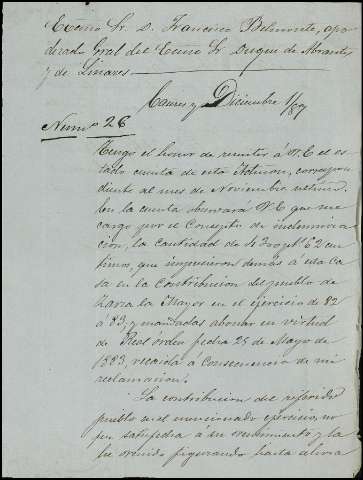 Excmo Sr. D. Francisco Belmonte, apo-
derado Gral del Excmo Sr Duque de Abrantes
y de Linares
Caceres y Diciembre 1/87
Numo 26
Tengo el honor de remitir á V.E el es-
tado cuenta de esta Admon, correspon-
diente al mes de Noviembre último.
En la cuenta observará V.E que me
cargo por el Concepto de indemniza-
cion, la Cantidad de 62 cen-
timos, que impusieron demás á esta Ca-
sa en la Contribucion del pueblo de
Zarza la Mayor en el ejercicio de 82
á 83, y mandadas abonar en virtud
de Real órden fecha 25 de Mayo de
1883, recaida á Consecuencia de mi
reclamacion.
La contribucion del referido
pueblo en el mencionado ejercicio, no
fue satisfecha á su vencimiento y la
he venido figurando hasta ahora